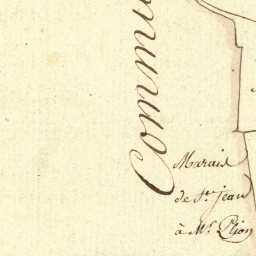 Commu
Marais
de St. jean
à Mr. Clion